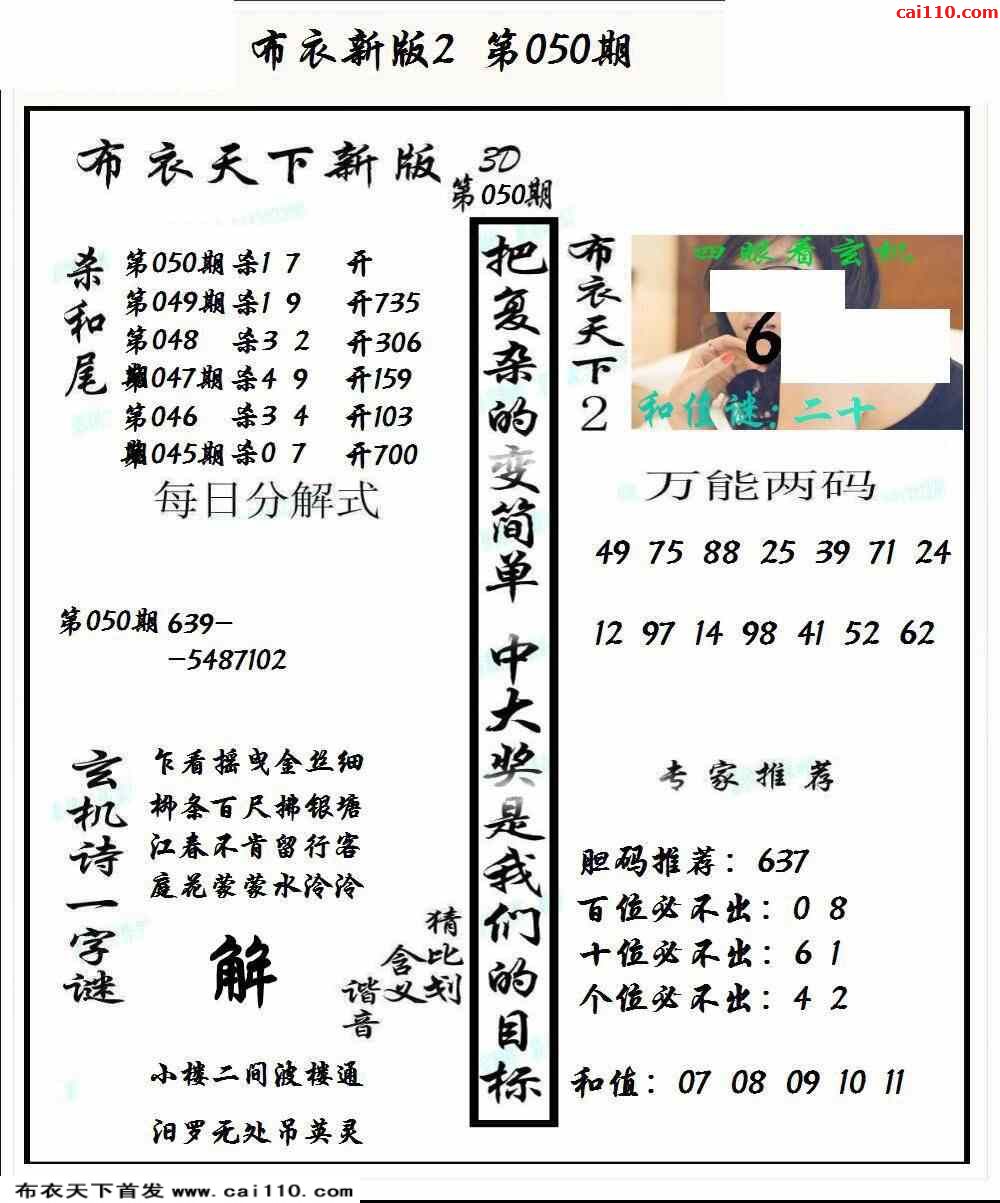 cai110.com
布衣新版2 第050期
布衣天下新版
3D
第050期
杀和尾
第050期 杀1 7 开
第049期 杀1 9 开735
第048 杀3 2 开306
期047期 杀4 9 开159
第046 杀3 4 开103
期045期 杀0 7 开700
每日分解式
第050期 639-
-5487102
玄机诗一字谜
乍看摇曳金丝细
柳条百尺拂银塘
江春不肯留行客
庭花蒙蒙水泠泠
解
猜比划
含义
谐音
小楼二间波楼通
汨罗无处吊英灵
把复杂的变简单 中大奖是我们的目标
布衣天下2
四眼看玄机
6
和值谜:二十
万能两码
49 75 88 25 39 71 24
12 97 14 98 41 52 62
专家推荐
胆码推荐：637
百位必不出：0 8
十位必不出：6 1
个位必不出：4 2
和值：07 08 09 10 11
布衣天下首发 www.cai110.com